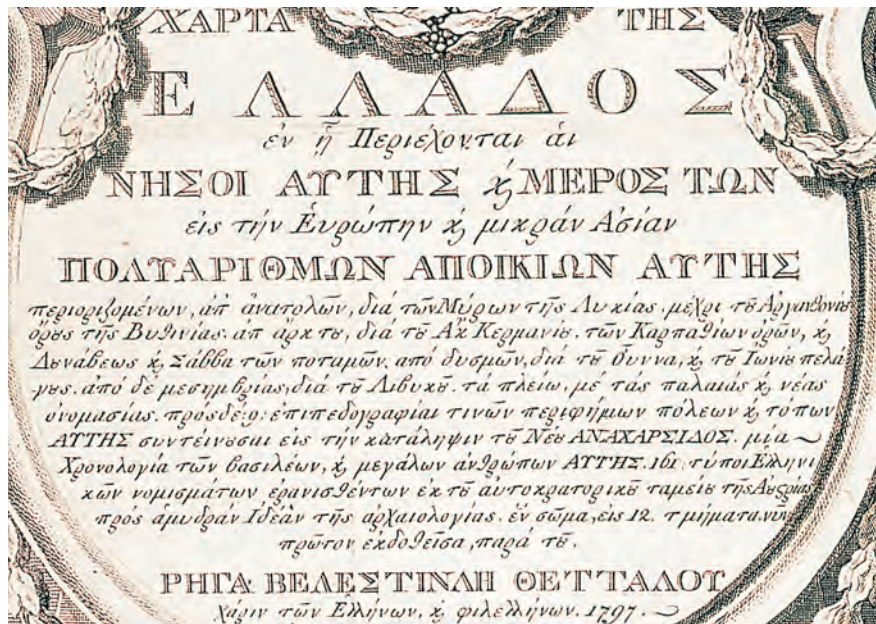 ΧΑΡΤΑ ΤΗΣ
ΕΛΛΑΔΟΣ
ἐν ᾗ Περιέχονται ἁι
ΝΗΣΟΙ ΑΥΤΗΣ ϗ ΜΕΡΟΣ ΤΩΝ
εἰς τήν Ἑυρώπην ϗ μικράν Ἀσίαν
ΠΟΛΥΑΡΙΘΜΩΝ ΑΠΟΙΚΙΩΝ ΑΥΤΗΣ
περιοριζομένων, ἀπ ἀνατολῶν, διά τῶν Μύρων τῆς Λυκίας. μέχρι τȣ Ἀργανθονίȣ
ὄρȣς τῆς Βυθινίας. ἀπ ἄρκτȣ, διά τȣ Ἀκ Κερμανίȣ. τῶν Καρπαθίων ὀρῶν, ϗ
Δȣνάβεως ϗ Σάββα τῶν ποταμῶν. από δυσμῶν, διά τȣ Ὄυννα, ϗ τȣ Ἰωνίȣ πελά
γȣς. ἀπό δέ μεσημβρίας, διά τȣ Λιβυκȣ. τά πλείω, μέ τάς παλαιάς ϗ νέας
ὀνομασίας. πρός δέ: 9: ἐπιπεδογραφίαι τινῶν περιφήμων πόλεων ϗ τόπων
ΑΥΤΗΣ συντείνȣσαι εἰς τήν κατάληψιν τȣ Νέȣ ΑΝΑΧΑΡΣΙΔΟΣ. μία
Χρονολογία τῶν βασιλέων, ϗ μεγάλων ἀνθρώπων ΑΥΤΗΣ. 161: τύποι Ἑλληνι
κῶν νομισμάτων ἐρανισθέντων ἐκ τȣ ἀυτοκρατορικȣ ταμείȣ τῆς Αὐϛρίας
πρός ἀμυδράν Ἰδεάν τῆς ἀρχαιολογίας. ἕν σῶμα, εἰς 12. τμήματα. νῦν
πρῶτον ἐκδοθεῖσα, παρά τȣ.
ΡΗΓΑ ΒΕΛΕΣΤΙΝΛΗ ΘΕΤΤΑΛΟΥ
Χάριν τῶν Ἑλλήνων, ϗ φιλελλήνων. 1797.